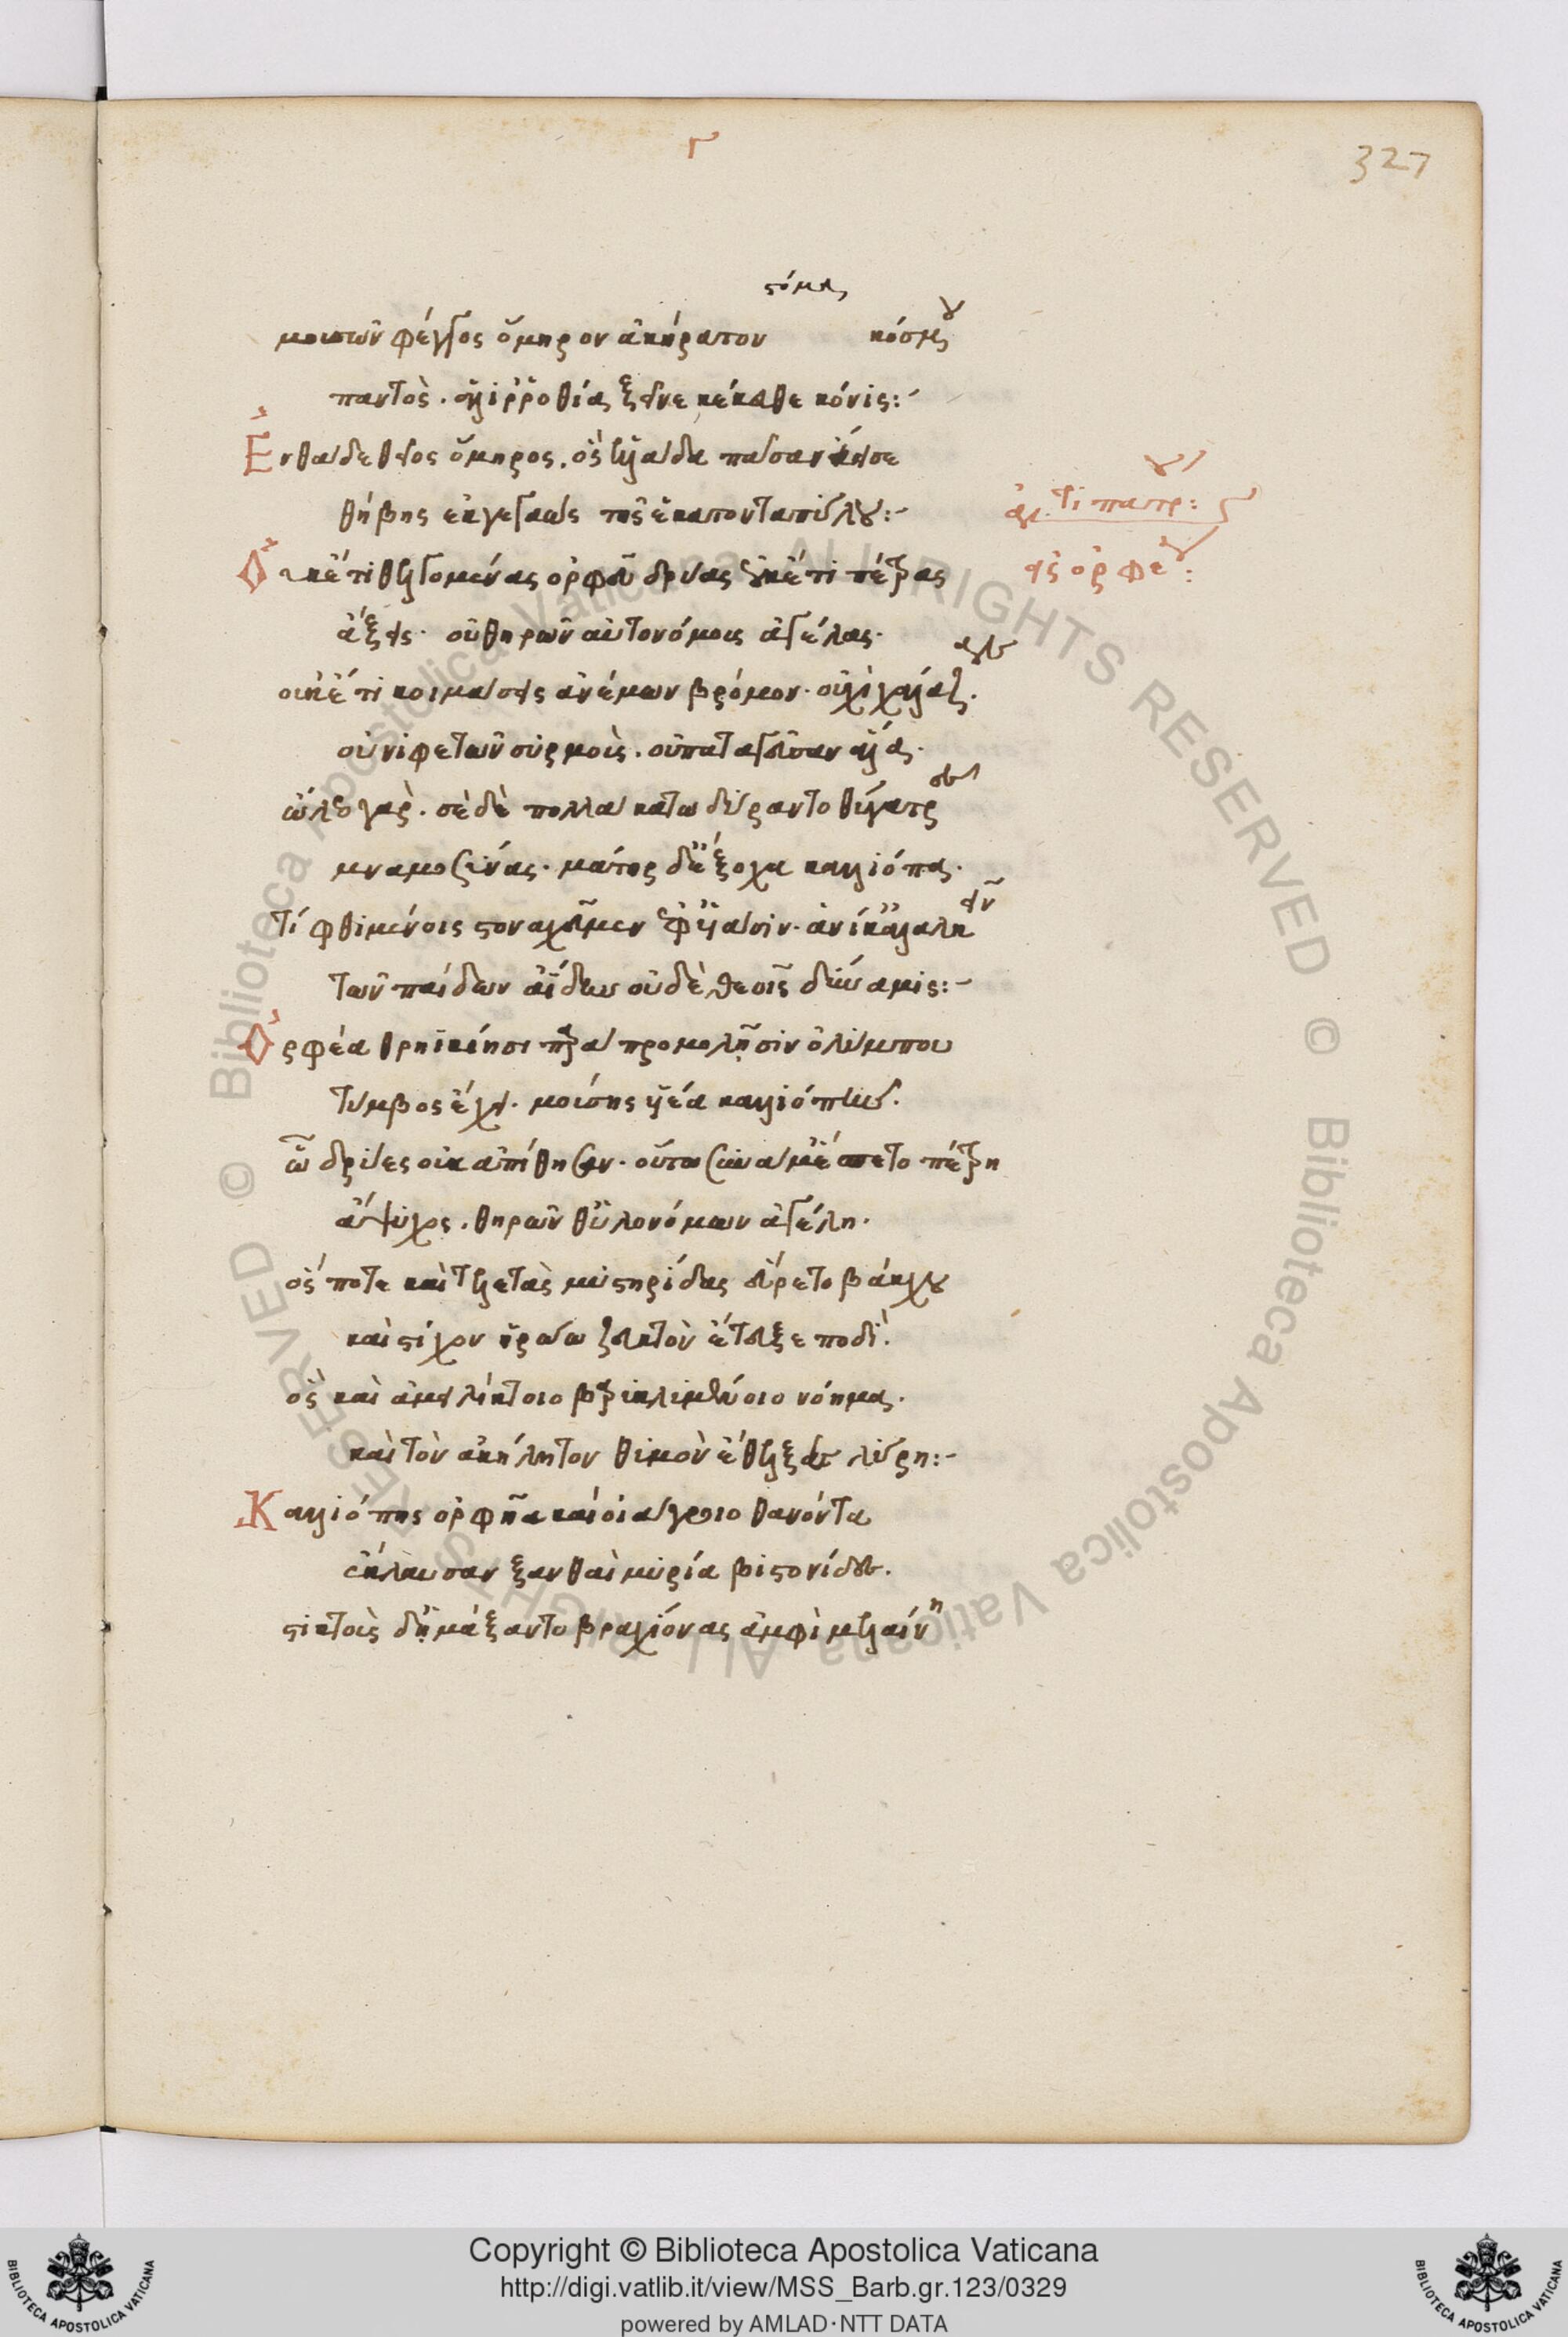 γ
327
στόμα
μουσῶν φέγγος ὅμηρον ἀκήρατον κόσμου
παντὸς. ἁλιρροθία ξεῖνε κέκευθε κόνις:-
Ἐνθάδε θεῖος ὅμηρος. ὃς ἑλλάδα πᾶσαν ἄεισε
θήβης ἐκγεγαὼς τῆς ἑκατονταπύλου:-
ἀντιπάτρου:
Οὐκέτι θελγομένας ὀρφεῦ δρύας οὐκέτι πέτρας
εἰς ὀρφέα:
ἄξεις. οὐ θηρῶν αὐτονόμους ἀγέλας.
οὐκέτι κοιμάσεις ἀνέμων βρόμον. οὐχὶ χάλαζαν.
οὐ νιφετῶν συρμοὺς. οὐ παταγεῦσαν ἅλα.
ὤλεο γὰρ. σὲ δὲ πολλὰ κατωδύραντο θύγατρες
μναμοσύνας. μάτηρ δ' ἔξοχα καλλιόπα.
τί φθιμένοις στοναχεῦμεν ἐφ' υἱάσιν. ἁνίκ' ἀλαλκεῖν
τῶν παίδων ἀΐδαν οὐδὲ θεοῖς δύναμις:-
Ὀρφέα θρηϊκίῃσι παρὰ προμολῇσιν ὀλύμπου
τύμβος ἔχει. μούσης υἱέα καλλιόπης.
ᾧ δρύες οὐκ ἀπίθησαν. ὅτῳ σὺν ἅμ' ἕσπετο πέτρη
ἄψυχος. θηρῶν θ' ὑλονόμων ἀγέλη.
ὅς ποτε καὶ τελετὰς μυστηρίδας εὕρετο βάκχου
καὶ στίχον ἡρώῳ ζευκτὸν ἔτευξε ποδί.
ὃς καὶ ἀμειλίκτοιο βαρὺ κλυμένοιο νόημα.
καὶ τὸν ἀκήλητον θυμὸν ἔθελξε λύρῃ:-
Καλλιόπης ὀρφῆα καὶ οἰάγροιο θανόντα
ἔκλαυσαν ξανθαὶ μυρία βιστονίδες.
στικτοὺς δ' ᾑμάξαντο βραχίονας ἀμφὶ μελαίνῃ
Copyright © Biblioteca Apostolica Vaticana
http://digi.vatlib.it/view/MSS_Barb.gr.123/0329
powered by AMLAD·NTT DATA